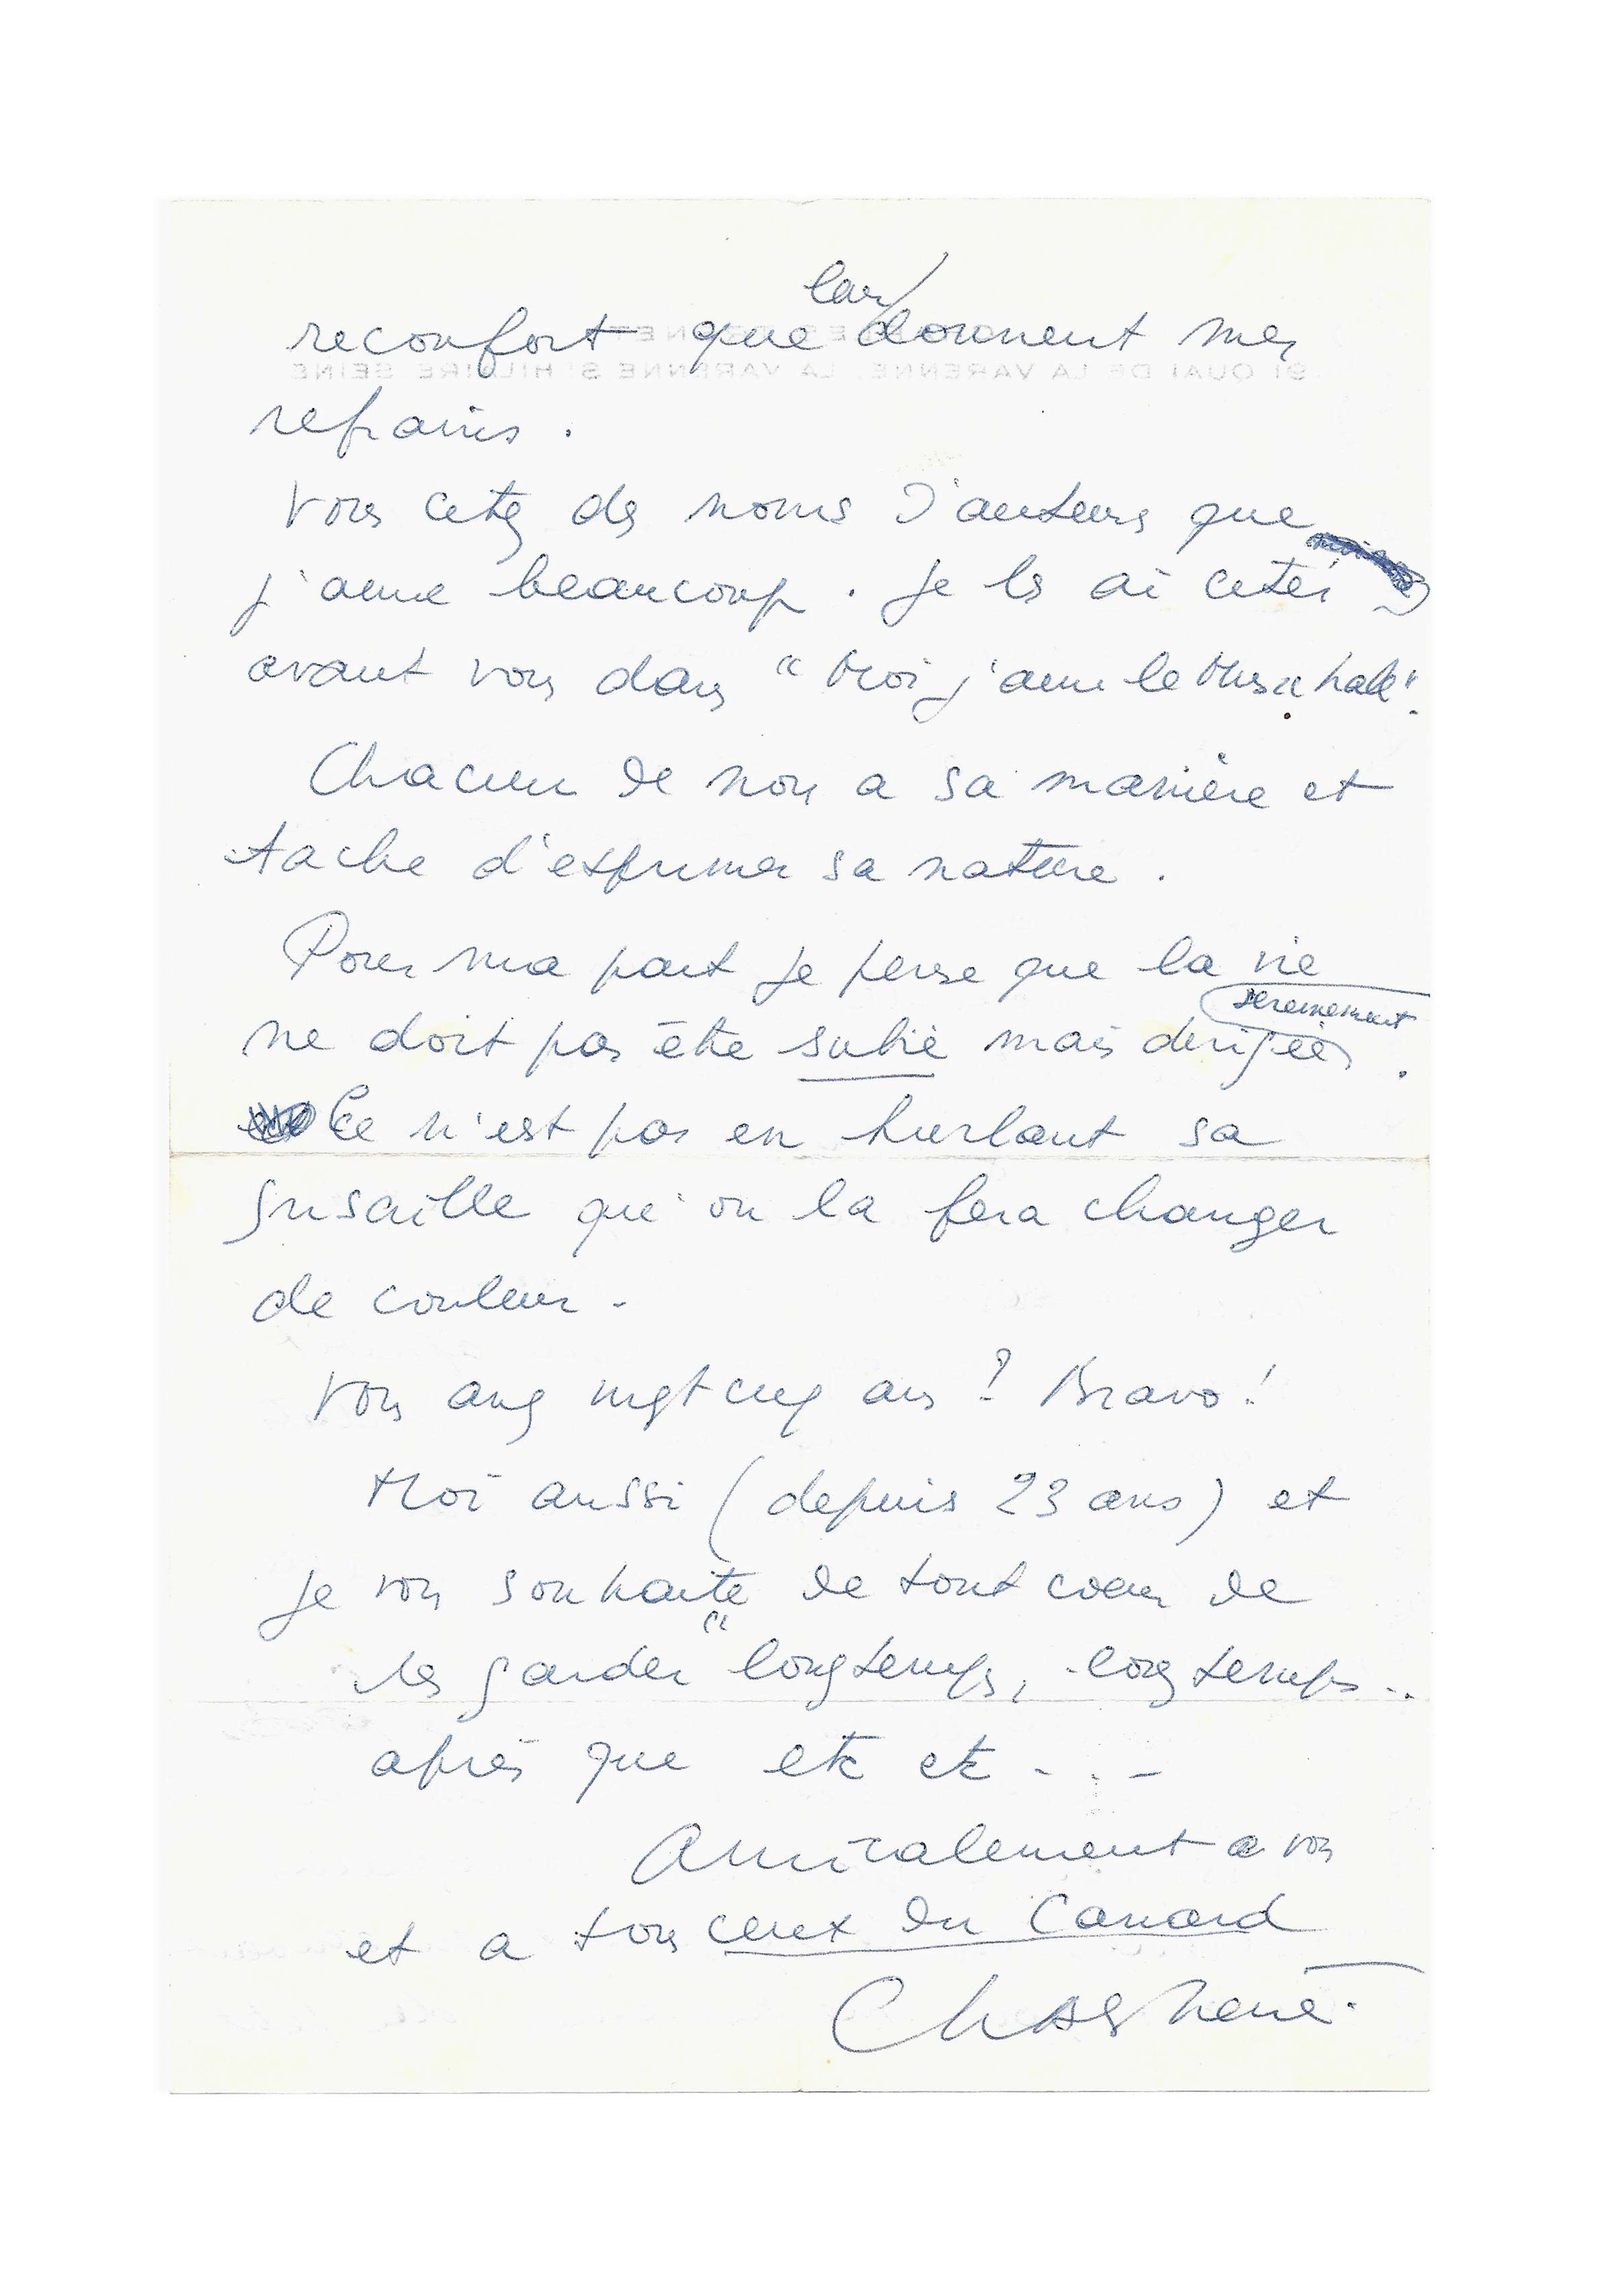 reconfort que leur donnent mes
refrains.
Vous citez des noms d'auteurs que
j'aime beaucoup. Je les ai cités
avant vous dans "Moi j'aime le Music hall".
Chacun de nous a sa manière et
tache d'exprimer sa nature.
Pour ma part je pense que la vie
ne doit pas être subie mais dirigée sereinement.
Ce n'est pas en hurlant sa
grisaille qu'on la fera changer
de couleur.
Vous avez vingt cinq ans ? Bravo !
Moi aussi (depuis 23 ans) et
je vous souhaite de tout coeur de
les garder "longtemps, longtemps..
après que etc etc - . -
Amicalement a vous
et a tous ceux du Canard
Chs Trenet.